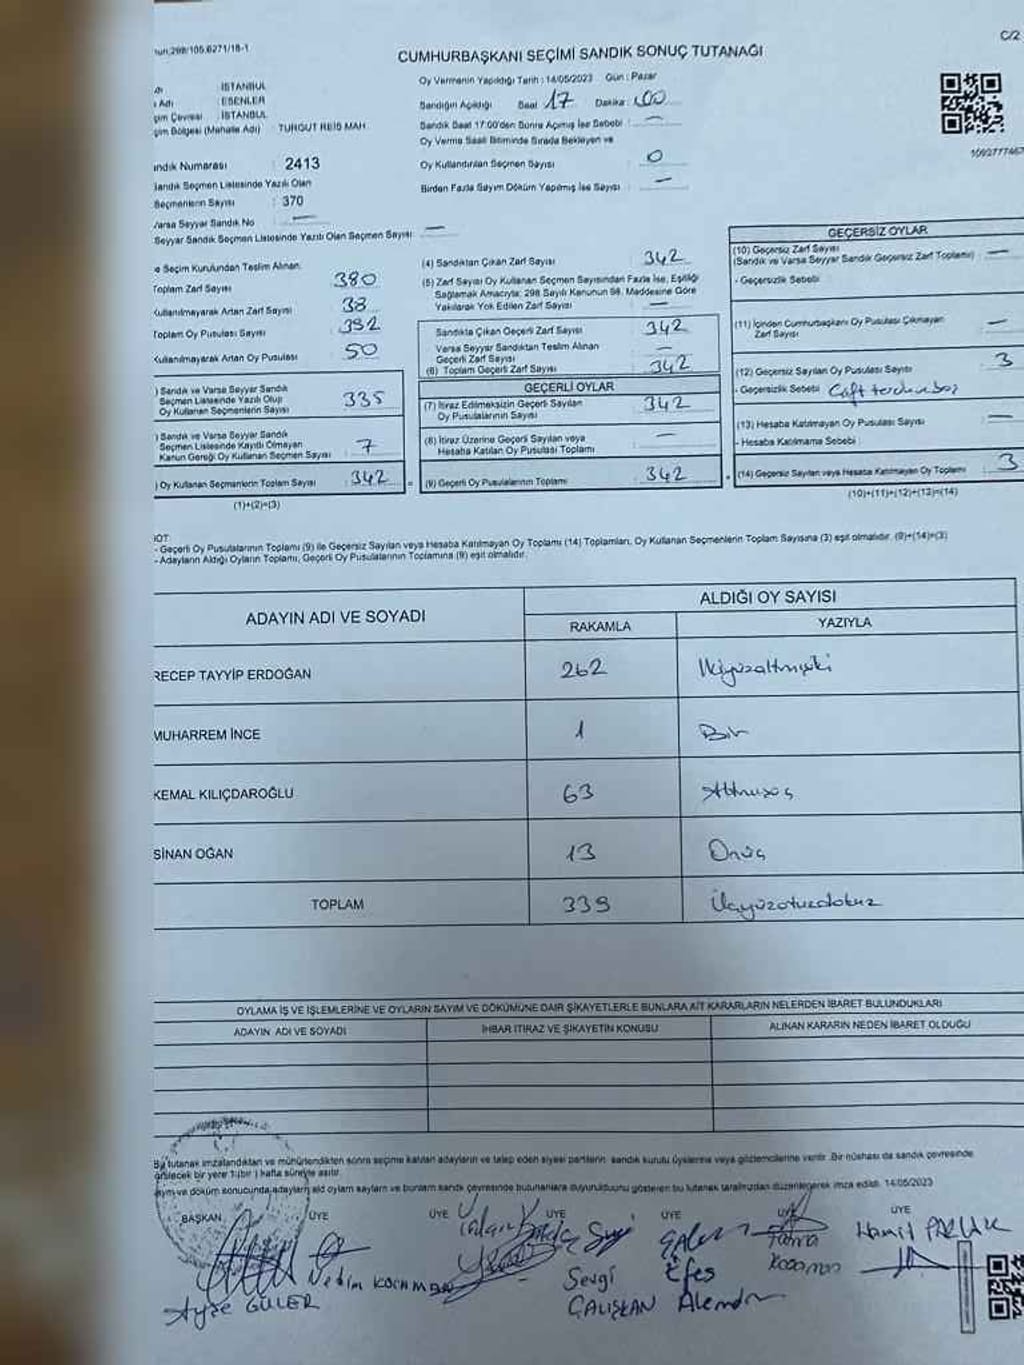 298/105.6271/18-1
C/2
CUMHURBAŞKANI SEÇİMİ SANDIK SONUÇ TUTANAĞI
İSTANBUL
Adı ESENLER
Çevresi İSTANBUL
Bölgesi (Mahalle Adı) TURGUT REİS MAH.
Numarası : 2413
Sandık Seçmen Listesinde Yazılı Olan
Seçmenlerin Sayısı : 370
Varsa Seyyar Sandık No : —
Seyyar Sandık Seçmen Listesinde Yazılı Olan Seçmen Sayısı : —
Oy Vermenin Yapıldığı Tarih : 14/05/2023 Gün : Pazar
Sandığın Açıldığı Saat 17 Dakika : 00
Sandık Saat 17:00'den Sonra Açılmış İse Sebebi : —
Oy Verme Saati Bitiminde Sırada Bekleyen ve
Oy Kullandırılan Seçmen Sayısı : 0
Birden Fazla Sayım Döküm Yapılmış İse Sayısı : —
Seçim Kurulundan Teslim Alınan
Toplam Zarf Sayısı 380
Kullanılmayarak Artan Zarf Sayısı 38
Toplam Oy Pusulası Sayısı 392
Kullanılmayarak Artan Oy Pusulası 50
) Sandık ve Varsa Seyyar Sandık
Seçmen Listesinde Yazılı Olup
Oy Kullanan Seçmenlerin Sayısı 335
) Sandık ve Varsa Seyyar Sandık
Seçmen Listesinde Kayıtlı Olmayan
Kanun Gereği Oy Kullanan Seçmen Sayısı 7
) Oy Kullanan Seçmenlerin Toplam Sayısı 342
(1)+(2)=(3)
(4) Sandıktan Çıkan Zarf Sayısı 342
(5) Zarf Sayısı Oy Kullanan Seçmen Sayısından Fazla İse, Eşitliği
Sağlamak Amacıyla; 298 Sayılı Kanunun 98. Maddesine Göre
Yakılarak Yok Edilen Zarf Sayısı —
Sandıkta Çıkan Geçerli Zarf Sayısı 342
Varsa Seyyar Sandıktan Teslim Alınan
Geçerli Zarf Sayısı —
(6) Toplam Geçerli Zarf Sayısı 342
GEÇERLİ OYLAR
(7) İtiraz Edilmeksizin Geçerli Sayılan
Oy Pusulalarının Sayısı 342
(8) İtiraz Üzerine Geçerli Sayılan veya
Hesaba Katılan Oy Pusulası Toplamı —
(9) Geçerli Oy Pusulalarının Toplamı 342
GEÇERSİZ OYLAR
(10) Geçersiz Zarf Sayısı
(Sandık ve Varsa Seyyar Sandık Geçersiz Zarf Toplamı) —
- Geçersizlik Sebebi
(11) İçinden Cumhurbaşkanı Oy Pusulası Çıkmayan
Zarf Sayısı —
(12) Geçersiz Sayılan Oy Pusulası Sayısı 3
- Geçersizlik Sebebi
(13) Hesaba Katılmayan Oy Pusulası Sayısı —
- Hesaba Katılmama Sebebi
(14) Geçersiz Sayılan veya Hesaba Katılmayan Oy Toplamı 3
(10)+(11)+(12)+(13)=(14)
- Geçerli Oy Pusulalarının Toplamı (9) ile Geçersiz Sayılan veya Hesaba Katılmayan Oy Toplamı (14) Toplamları, Oy Kullanan Seçmenlerin Toplam Sayısına (3) eşit olmalıdır. (9)+(14)=(3)
- Adayların Aldığı Oyların Toplamı, Geçerli Oy Pusulalarının Toplamına (9) eşit olmalıdır.
ADAYIN ADI VE SOYADI
ALDIĞI OY SAYISI
RAKAMLA YAZIYLA
RECEP TAYYİP ERDOĞAN 262 İkiyüzaltmışiki
MUHARREM İNCE 1 Bir
KEMAL KILIÇDAROĞLU 63 Altmışüç
SİNAN OĞAN 13 Onüç
TOPLAM 339 Üçyüzotuzdokuz
OYLAMA İŞ VE İŞLEMLERİNE VE OYLARIN SAYIM VE DÖKÜMÜNE DAİR ŞİKAYETLERLE BUNLARA AİT KARARLARIN NELERDEN İBARET BULUNDUKLARI
ADAYIN ADI VE SOYADI İHBAR İTİRAZ VE ŞİKAYETİN KONUSU ALINAN KARARIN NEDEN İBARET OLDUĞU
Bu tutanak imzalandıktan ve mühürlendikten sonra seçime katılan adayların ve talep eden siyasi partilerin sandık kurulu üyelerine veya gözlemcilerine verilir. Bir nüshası da sandık çevresinde
bir yere 1 (bir) hafta süreyle asılır.
sayım ve döküm sonucunda adayların aldığı oyların sayılarını ve bunların sandık çevresinde bulunanlara duyurulduğunu gösteren bu tutanak tarafımızdan düzenlenerek imza edildi. 14/05/2023
BAŞKAN ÜYE ÜYE ÜYE ÜYE ÜYE ÜYE
Ayşe GÜLER
Sevgi ÇALIŞKAN
Efes
Fatma
Hamit PARLAK